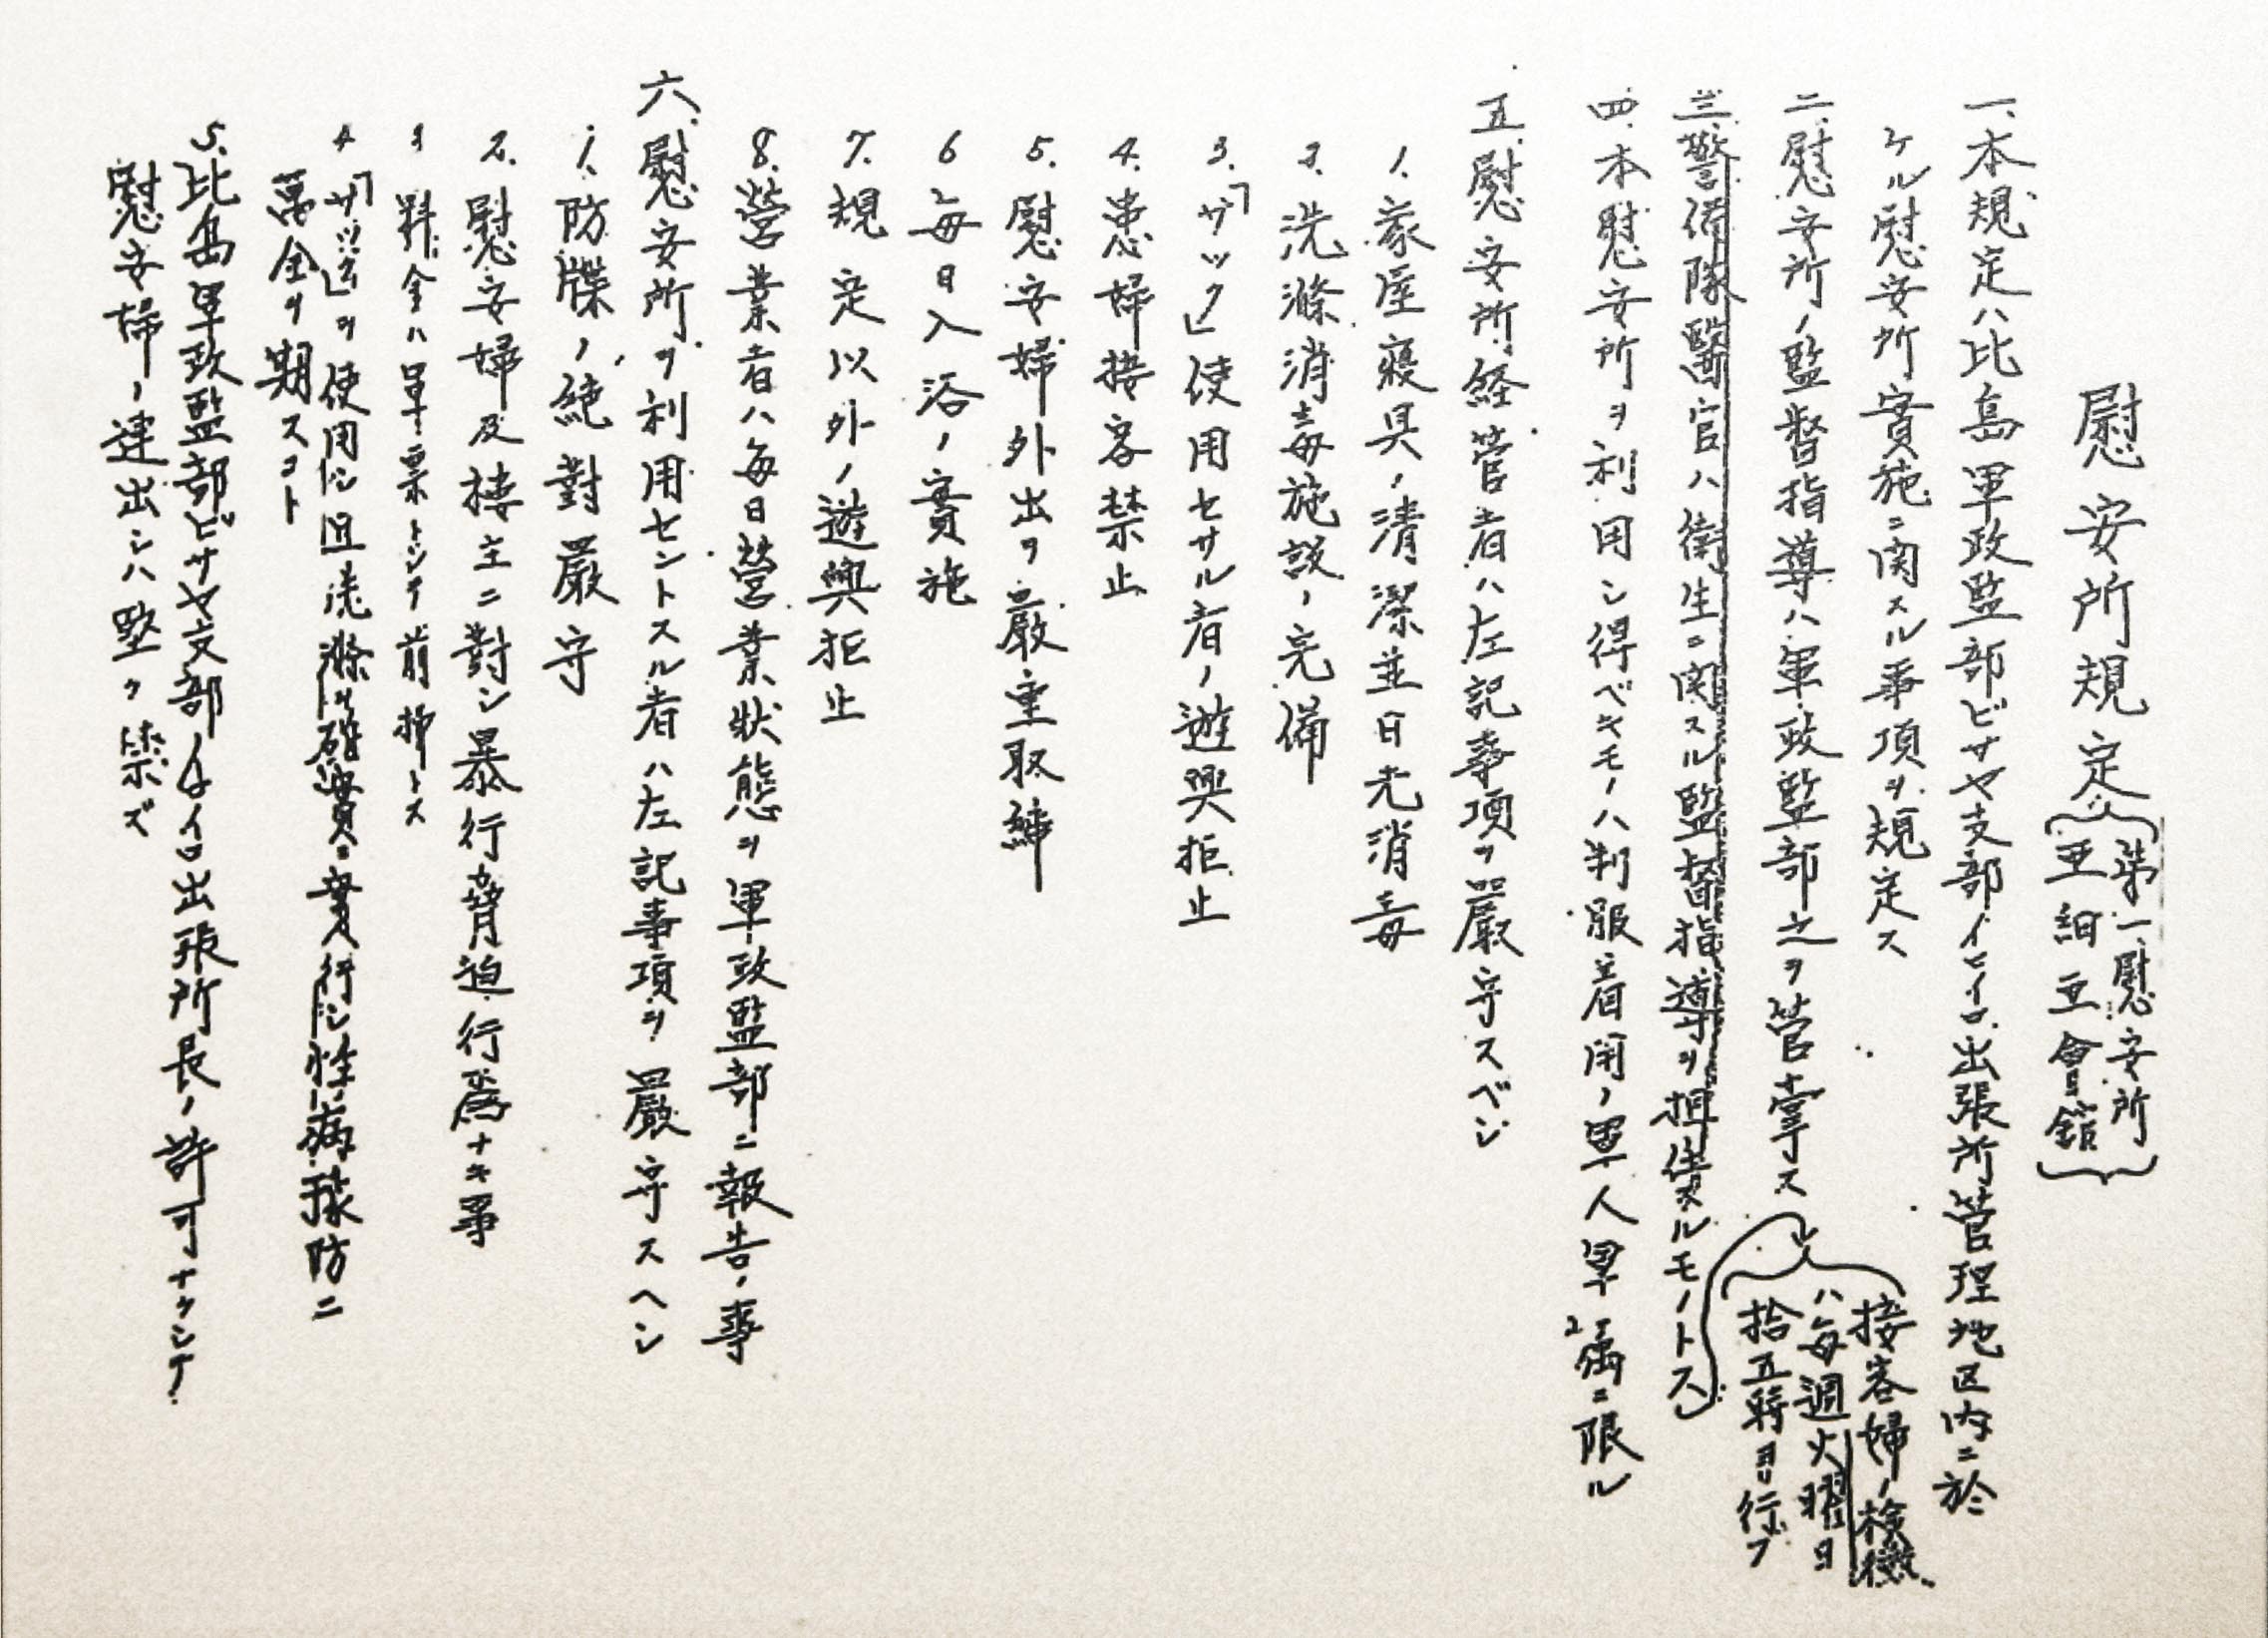 慰安所規定(第一慰安所
亜細亜會館)
一、本規定ハ比島軍政監部ビサヤ支部イロイロ出張所管理地区内ニ於
ケル慰安所實施ニ関スル事項ヲ規定ス
二、慰安所ノ監督指導ハ軍政監部之ヲ管掌ス
三、警備隊醫官ハ衛生ニ関スル監督指導ヲ担任スルモノトス
接客婦ノ検黴
ハ毎週火曜日
拾五時ヨリ行フ
四、本慰安所ヲ利用シ得ベキモノハ制服着用ノ軍人軍属ニ限ル
五、慰安所経営者ハ左記事項ヲ嚴守スベシ
1. 家屋寝具ノ清潔並日光消毒
2. 洗滌消毒施設ノ完備
3. 「サック」使用セサル者ノ遊興拒止
4. 患婦接客禁止
5. 慰安婦外出ヲ嚴重取締
6 毎日入浴ノ實施
7. 規定以外ノ遊興拒止
8. 營業者ハ毎日營業状態ヲ軍政監部ニ報告ノ事
六、慰安所ヲ利用セントスル者ハ左記事項ヲ嚴守スヘシ
1. 防諜ノ絶對嚴守
2. 慰安婦及楼主ニ對シ暴行脅迫行爲ナキ事
3 料金ハ軍票トシテ前拂トス
4 「サック」ヲ使用シ且洗滌ヲ確實ニ実行シ性病予防ニ
萬全ヲ期スコト
5. 比島軍政監部ビサヤ支部イロイロ出張所長ノ許可ナクシテ
慰安婦ノ連出シハ堅ク禁ズ